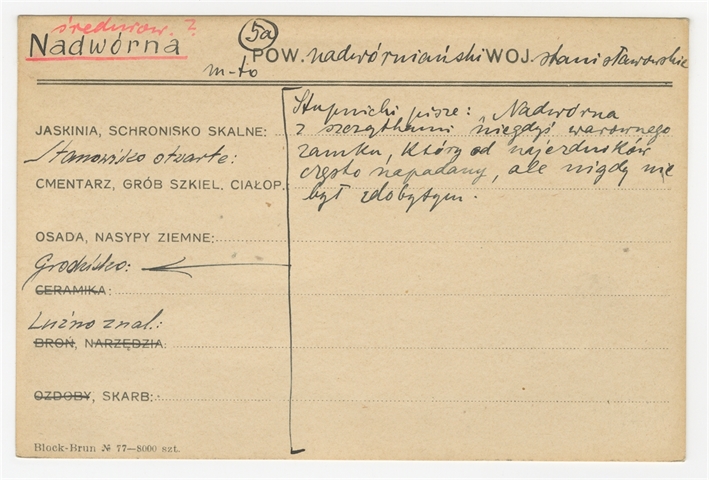 średniow. ?
5a
Nadwórna POW. nadwórniański WOJ. stanisławowskie
m-to
Stupnicki pisze: „Nadwórna
JASKINIA, SCHRONISKO SKALNE: z szczątkami niegdyś warownego
Stanowisko otwarte: zamku, który od najezdników
CMENTARZ, GRÓB SZKIEL. CIAŁOP.: często napadany, ale nigdy nie
był zdobytym.
OSADA, NASYPY ZIEMNE:
Grodzisko:
CERAMIKA:
Luźno znal.:
BROŃ, NARZĘDZIA:
OZDOBY, SKARB:
Block-Brun № 77—8000 szt.